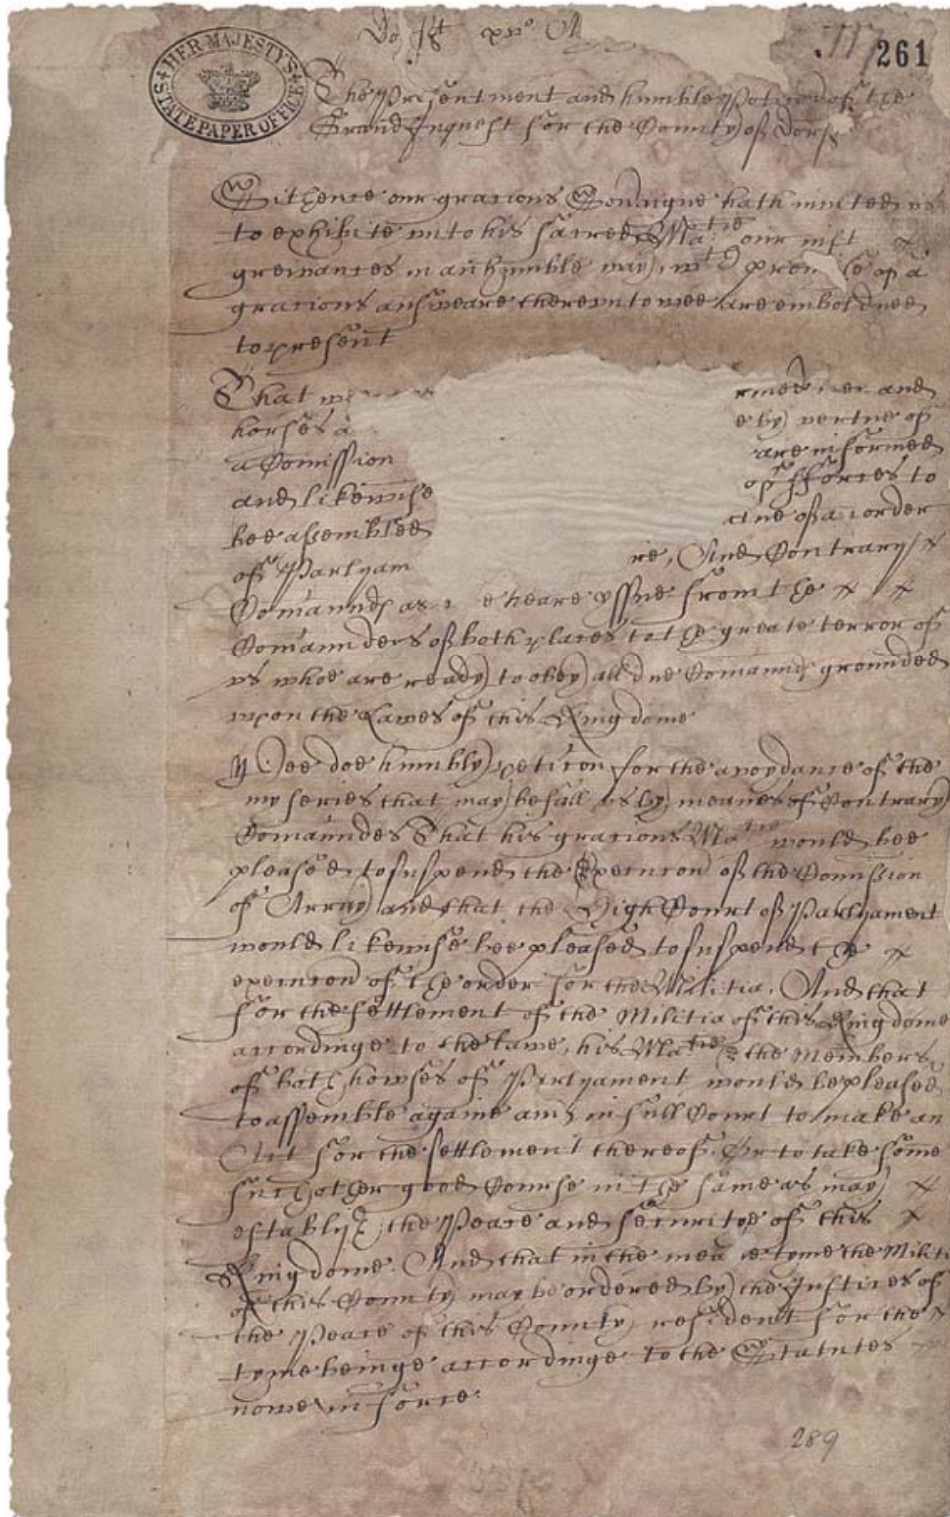 HER MAJESTY'S
STATE PAPER OFFICE
261
The Presentment and humble Peticion of the
Grand Inquest for the County of Dors
Sithence our gracious Soveraigne hath invited us
to exhibite unto his sacred Ma:tie our iust
greivances in an humble way, wth promise of a
gracious answeare thereunto wee are emboldned
to present
That
horses a e by vertue of
a Comission are informed
and likewise of fforces to
bee assembled of an order
of Parlyam re, And Contrary
Comaunds as we heare yssue from the
Comaunders of both places to the greate terror of
us whoe are ready to obey all due Comaunds grounded
upon the Lawes of this Kingdome
Wee doe humbly peticon for the avoydance of the
myseries that may befall us by meanes of Contrary
Comaundes That his gracious Matie would bee
pleased to suspend the Execucion of the Comission
of Array and that the High Court of Parlyament
would likewise bee pleased to suspend the
execucion of the order for the Militia. And that
for the settlement of the Militia of this Kingdome
accordinge to the lawe, his Matie & the Members
of both howses of Parlyament would be pleased
to assemble againe and in full Court to make an
Act for the settlement thereof. Or to take some
such other good Course in the same as may
establish the Peace and securitye of this
Kingdome. And that in the meane tyme the Militi
of this County may be ordered by the Justices of
the Peace of this County resident for the
tyme beinge accordinge to the Statutes
nowe in force.
289